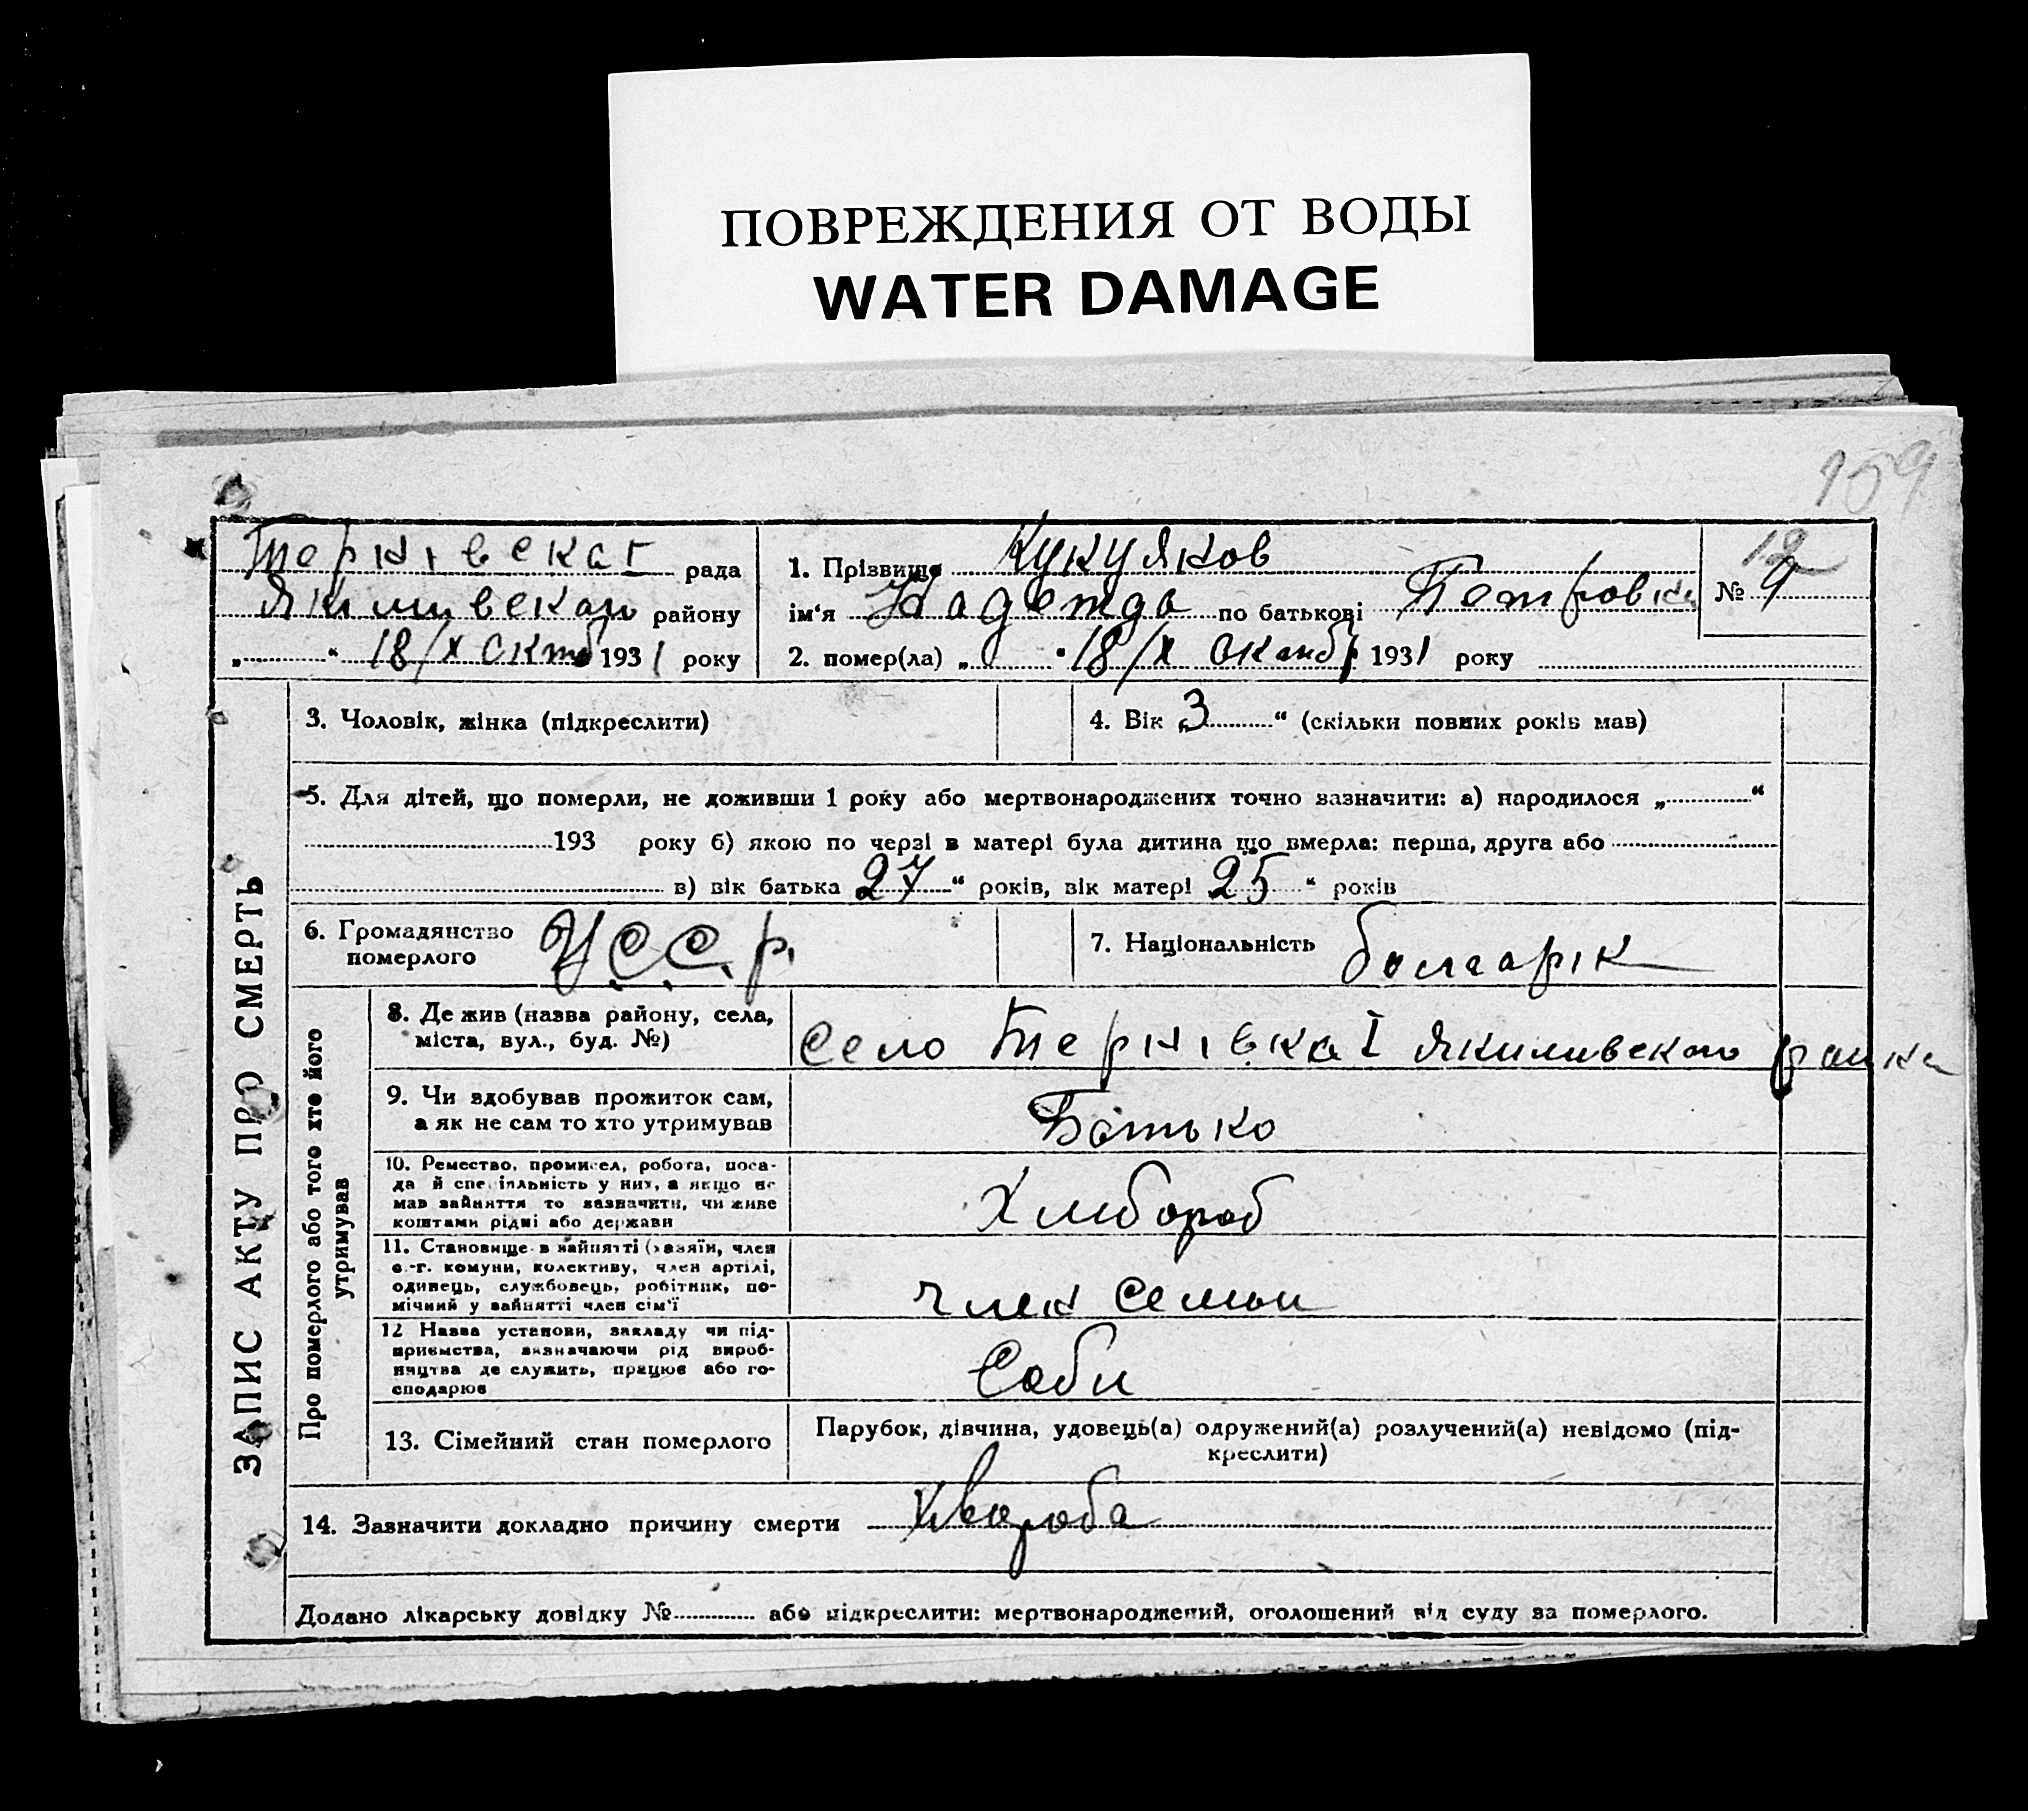 ПОВРЕЖДЕНИЯ ОТ ВОДЫ
WATER DAMAGE
159
Тернівська I рада
Якимивского району
„ “ 18/X октяб 1931 року
1. Прізвище Кукуляков
ім‘я Надежда по батькові Петровна
2. помер(ла) „ “ 18/X 1931 року
№ 12 9
ЗАПИС АКТУ ПРО СМЕРТЬ
3. Чоловік, жінка (підкреслити)
4. Вік 3 “ (скільки повних років мав)
5. Для дітей, що померли, не доживши 1 року або мертвонароджених точно зазначити: а) народилося „ “
193 року б) якою по черзі в матері була дитина що вмерла: перша, друга або
в) вік батька 27 “ років, вік матері 25 “ років
6. Громадянство
померлого У.С.С.р.
7. Національність болгарік
Про померлого або того хто його
утримував
8. Де жив (назва району, села,
міста, вул., буд. №)
село Тернівка I Якимивского
9. Чи здобував прожиток сам,
а як не сам то хто утримував
Батько
10. Ремество, промисел, робота, поса-
да й спеціяльність у них, а якщо не
мав зайняття то зазначити, чи живе
коштами рідні або держави
Хлибороб
11. Становище в зайнятті (хазяїн, член
с.-г. комуни, колективу, член артілі,
одинець, службовець, робітник, по-
мічний у зайнятті член сім‘ї
член семьи
12 Назва установи, закладу чи під-
приємства, визначаючи рід вироб-
ництва де служить, працює або го-
сподарює
Соби
13. Сімейний стан померлого
Парубок, дівчина, удовець(а) одружений(а) розлучений(а) невідомо (під-
креслити)
14. Зазначити докладно причину смерти Хвороба
Додано лікарську довідку № або підкреслити: мертвонароджений, оголошений від суду за померлого.